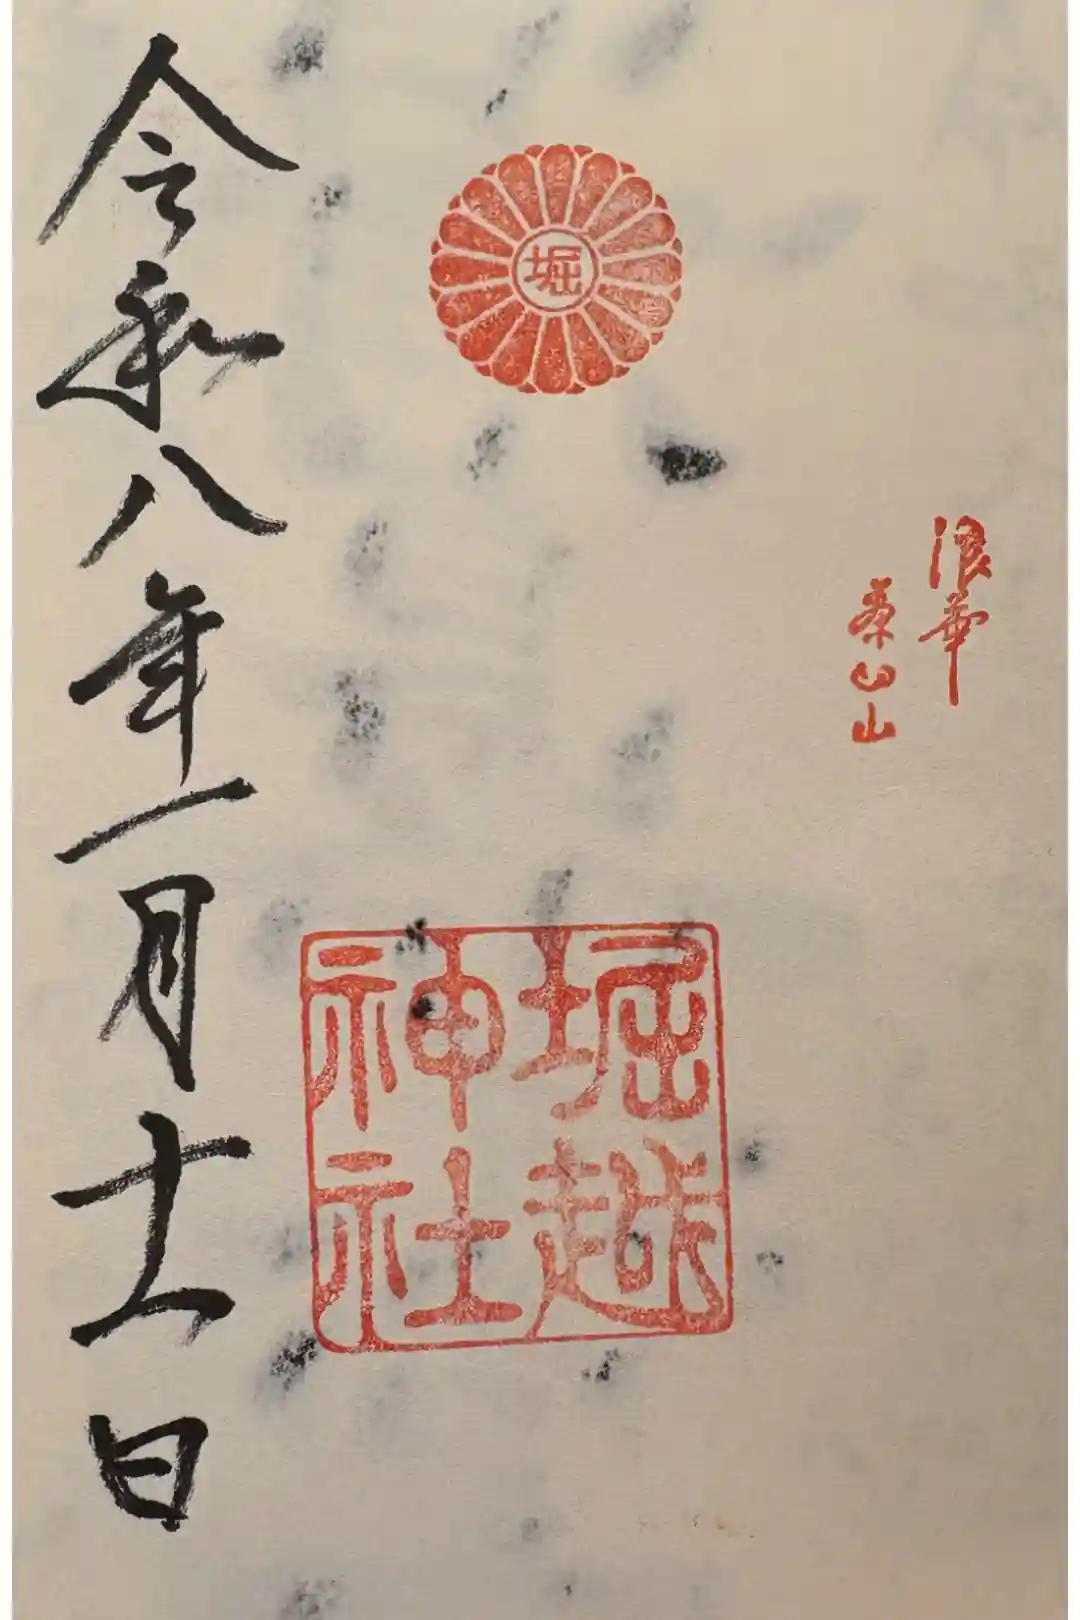 浪華
茶臼山
堀
堀越
神社
令和八年一月十一日